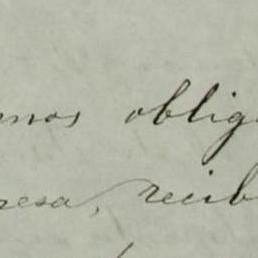 mos oblig
resa, recib